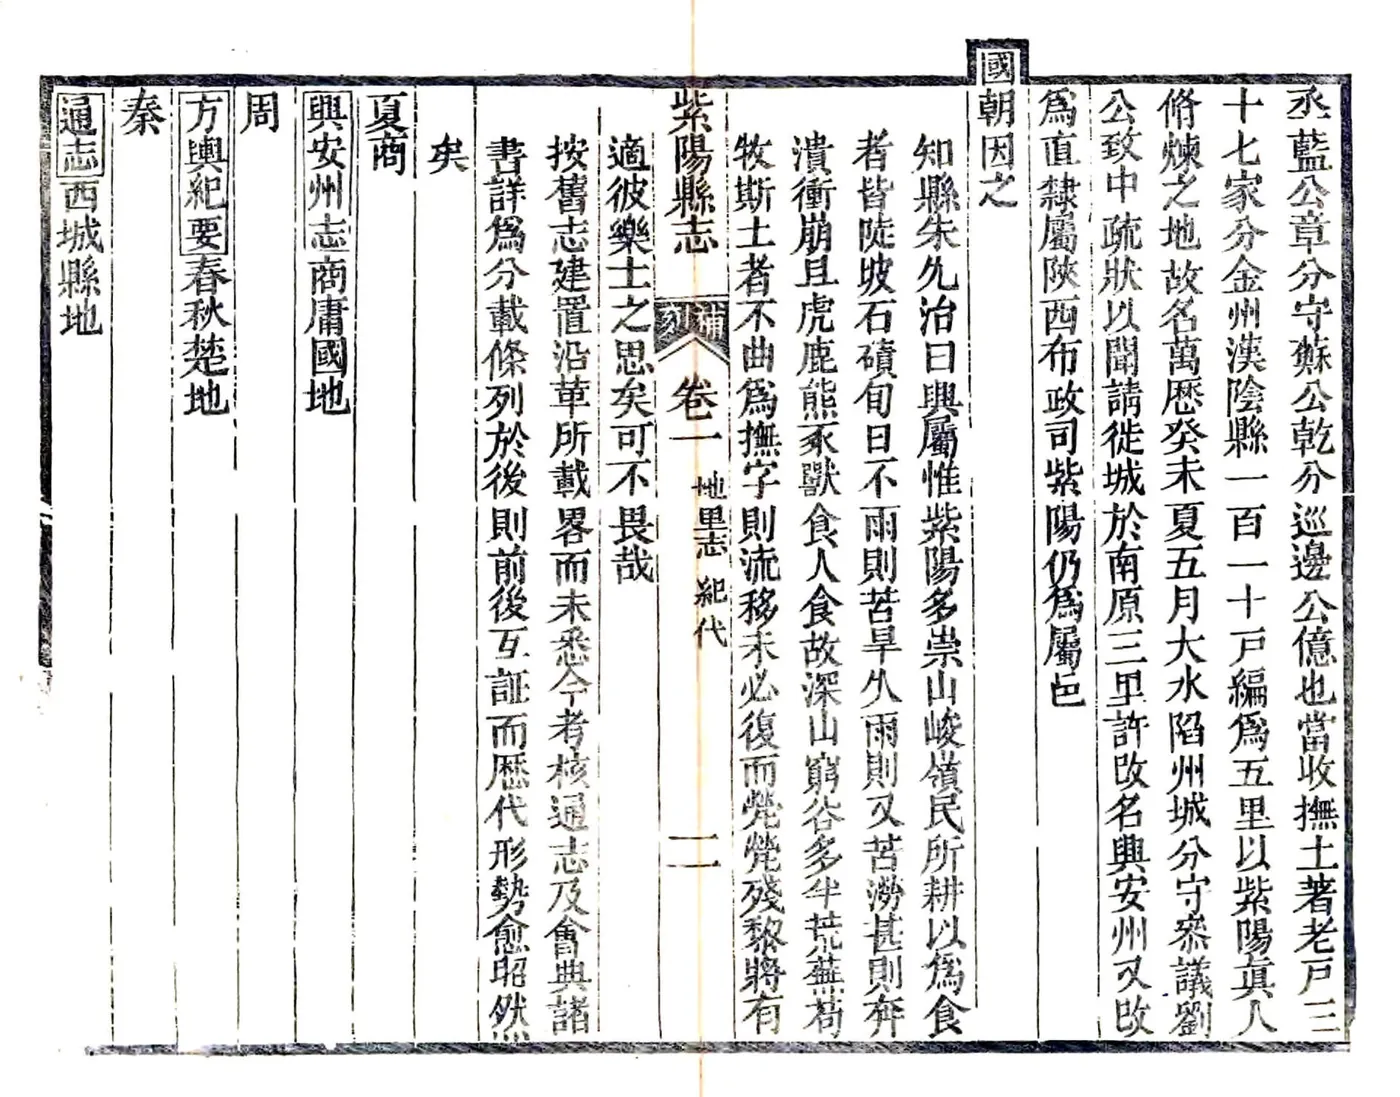 丞藍公章分守蘇公乾分巡邊公億也當收撫土著老戸三
十七家分金州漢陰縣一百一十戸編爲五里以紫陽眞人
脩煉之地故名萬歷癸未夏五月大水陷州城分守叅議劉
公致中疏狀以聞請徙城於南原三里許改名興安州又改
爲直隸屬陝西布政司紫陽仍爲屬邑
國朝因之
知縣朱允治曰興屬惟紫陽多崇山峻嶺民所耕以爲食
者皆陡坡石磧旬日不雨則苦旱久雨則又苦澇甚則奔
潰衝崩且虎鹿熊豕獸食人食故深山窮谷多半荒蕪苟
牧斯土者不曲爲撫字則流移未必復而煢煢殘黎將有
紫陽縣志 補刻 卷一 地里志 紀代 二
適彼樂士之思矣可不畏哉
按舊志建置沿革所載畧而未悉今考核通志及會典諸
書詳爲分載條列於後則前後互証而歷代形勢愈昭然
矣
夏商
興安州志商庸國地
周
方輿紀要春秋楚地
秦
通志西城縣地